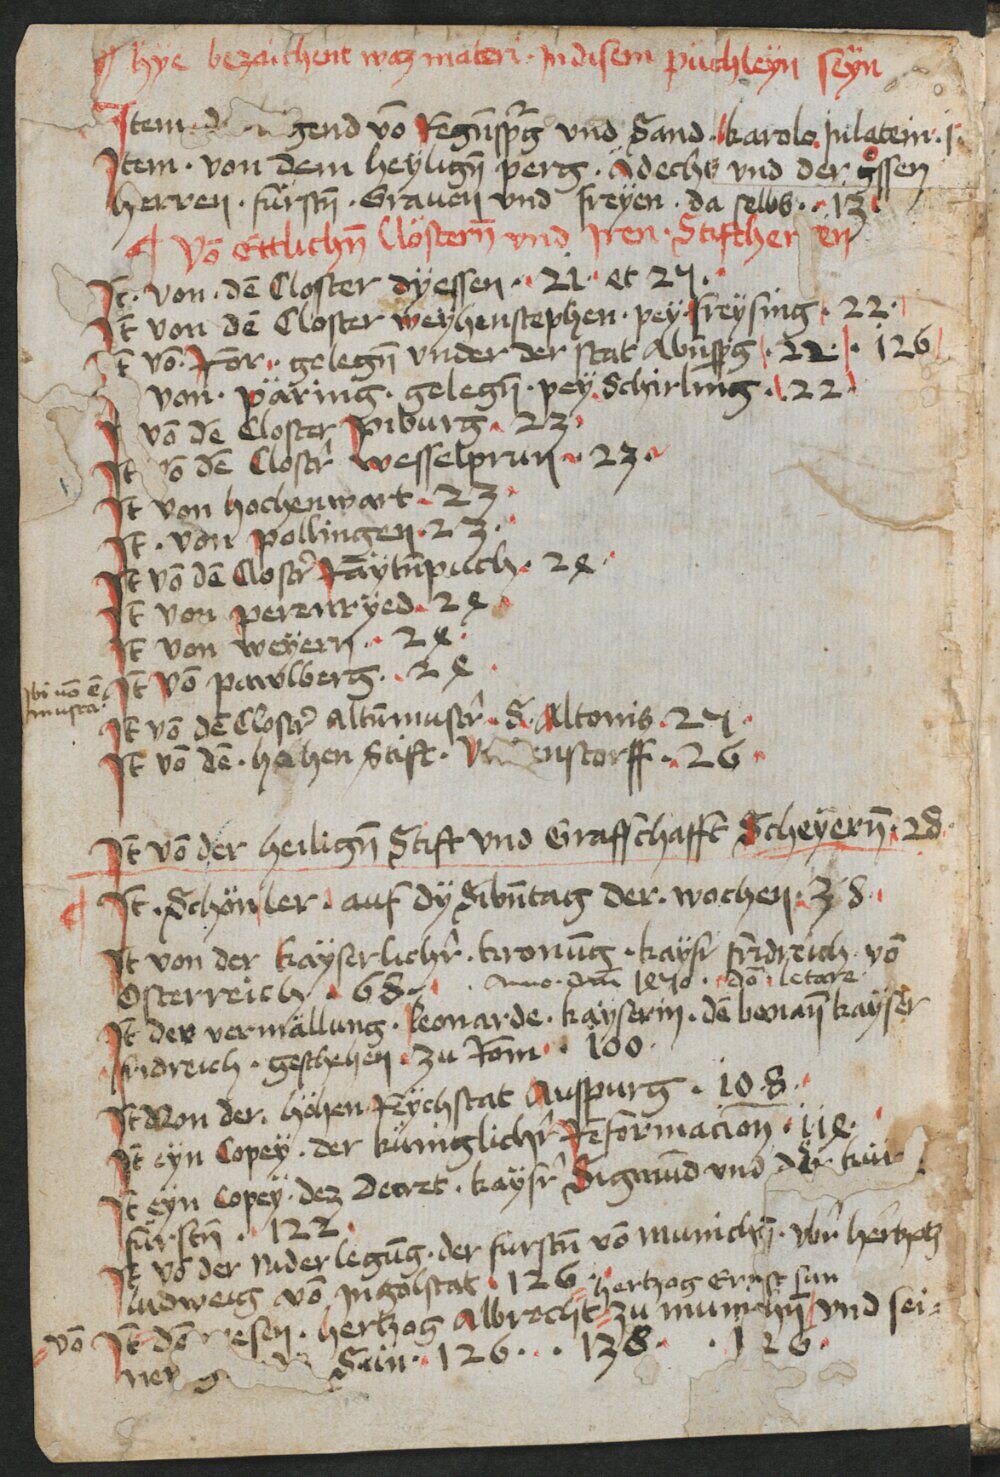 hye bezaichent waz materi · In disem puchleyn seyn
Item gend võ Regñspᷣg vnd Sand · karolo · In latein · j·
Item · von dem heyligñ perg · Ädechs vnd der
herren · fürstñ · Grauen vnd freyen · da selbs · 13 ·
Võ ettlichñ Clösterñ vnd Iren · Stiftheren
It · von · dẽ Closter dyessen · 21 · et 27 ·
It von dẽ Closter weyhenstephen · pey · freysing · 22 ·
It võ · Ror · gelegñ vnder der stat Abñspᷣg · 22 · 126
von · päring · gelegñ · pey Schirling · 22
võ dẽ Closter piburg · 23 ·
It võ dẽ Clostᷣ wesselprun · 23 ·
It von hochenwart · 23 ·
It · von pollingen · 23 ·
It võ dẽ Clostᷣ Raytñpuch · 24 ·
It von perenryed · 24 ·
It von weyern · 24 ·
It võ pawlberg · 24 ·
It võ dẽ Clostᷣ altñmustᷣ · S · Altonis · 27 ·
It võ dẽ · hochen Stift · enstorff · 26 ·
It võ der heiligñ Stift vnd Graffschafft Scheyerñ · 28 ·
It · Schönler · auf dy Sibñtag der · wochen · 38 ·
It von der kayserlichᷣ · kronũg · kaysᷣ fridreich · võ
Osterreich · 68 · Anno · dñi 1470 · dõ letare
It der vermällung · leonarde · kayserin · dẽ kayser
fridreich · geschehen · zu Rom · 100 ·
It Von der · höhen Reychstat Auspurg · 108 ·
It eyn Copey · der küniglichᷣ Reformacion · 114 ·
It eyn Copey · dez Decret · kaysᷣ Sigmũd vnd der kur
fürstñ · 122 ·
It võ der niderlegũg · der furstñ võ munichñ · vbᷣ hertzog
ludweig võ Ingolstat · 126 · hertzog Ernst sun
võ It dõ wesen · hertzog Albrecht zu munichñ vnd sei=
ner Sün · 126 · · 138 · · 126 ·